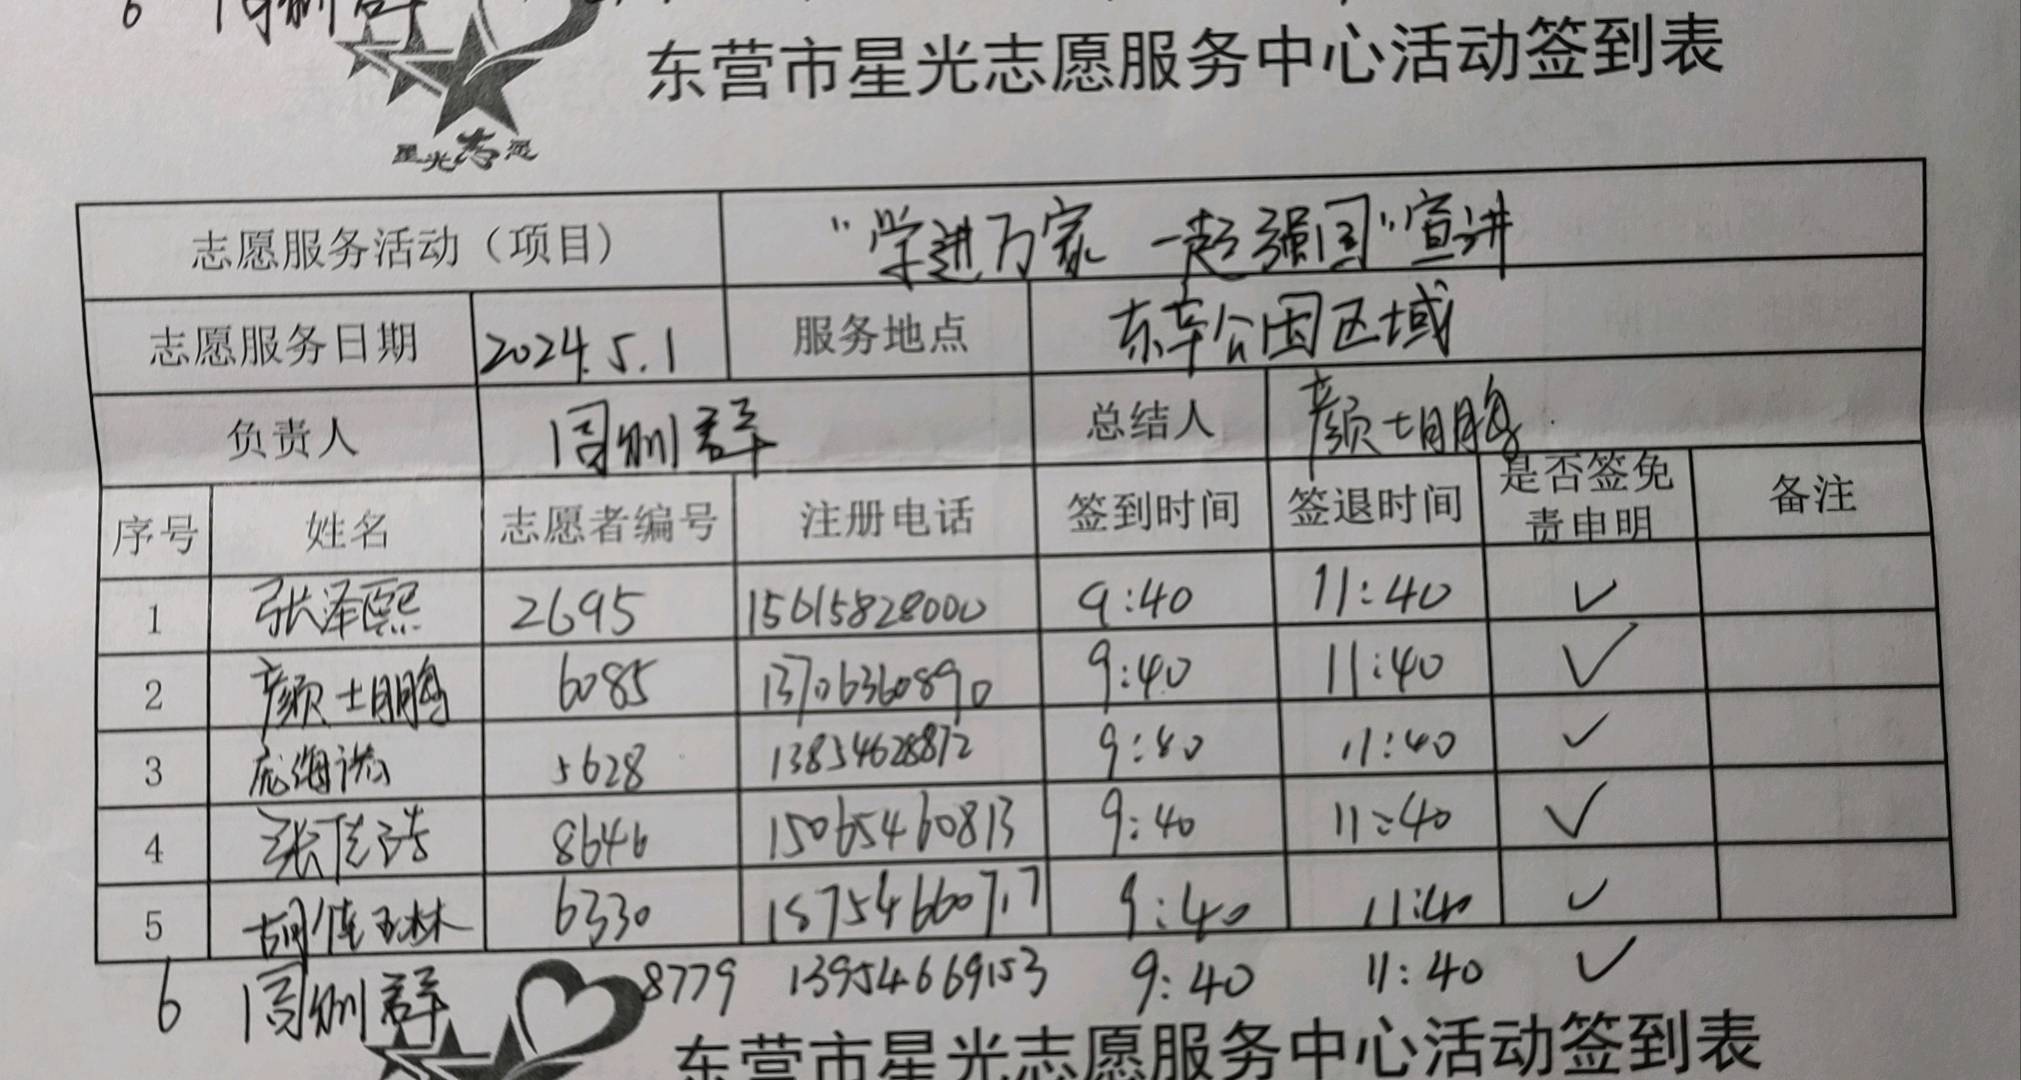 6 周姗群
东营市星光志愿服务中心活动签到表
星光志愿
志愿服务活动（项目） “学进万家 一起强国”宣讲
志愿服务日期 2024.5.1 服务地点 东辛公园区域
负责人 周姗群 总结人 颜士鹏
序号 姓名 志愿者编号 注册电话 签到时间 签退时间 是否签免责申明 备注
1 张泽熙 2695 15615828000 9:40 11:40 ✓
2 颜士鹏 6085 13706360890 9:40 11:40 ✓
3 海诺 5628 13854628872 9:40 11:40 ✓
4 张浩 8646 15065460813 9:40 11:40 ✓
5 胡佳琳 6330 18754660717 9:40 11:40 ✓
6 周姗群 8779 13954669153 9:40 11:40 ✓
东营市星光志愿服务中心活动签到表